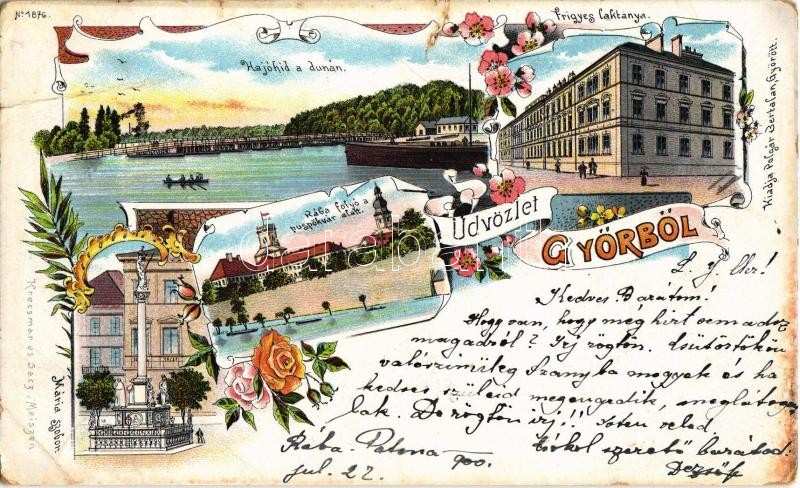 No 1876.
Frigyes laktánya.
Hajóhíd a dunán.
Kiadja Polgár Bertalan, Győrött.
Rába folyó a
puspökvár alatt.
Üdvözlet
GYŐRBŐL
Mária szobor.
Kedves Barátom!
Hogy van, hogy még hirt sem adsz
magadról? Irj rögtön. Csütörtökön
valószinüleg Aranyba megyek és ha
kedves szüleid megengedik, meglátoga-
lak. De rögtön irj!! Isten veled
szerető barátod:
Dezső
Rába-Patona 900.
jul. 22